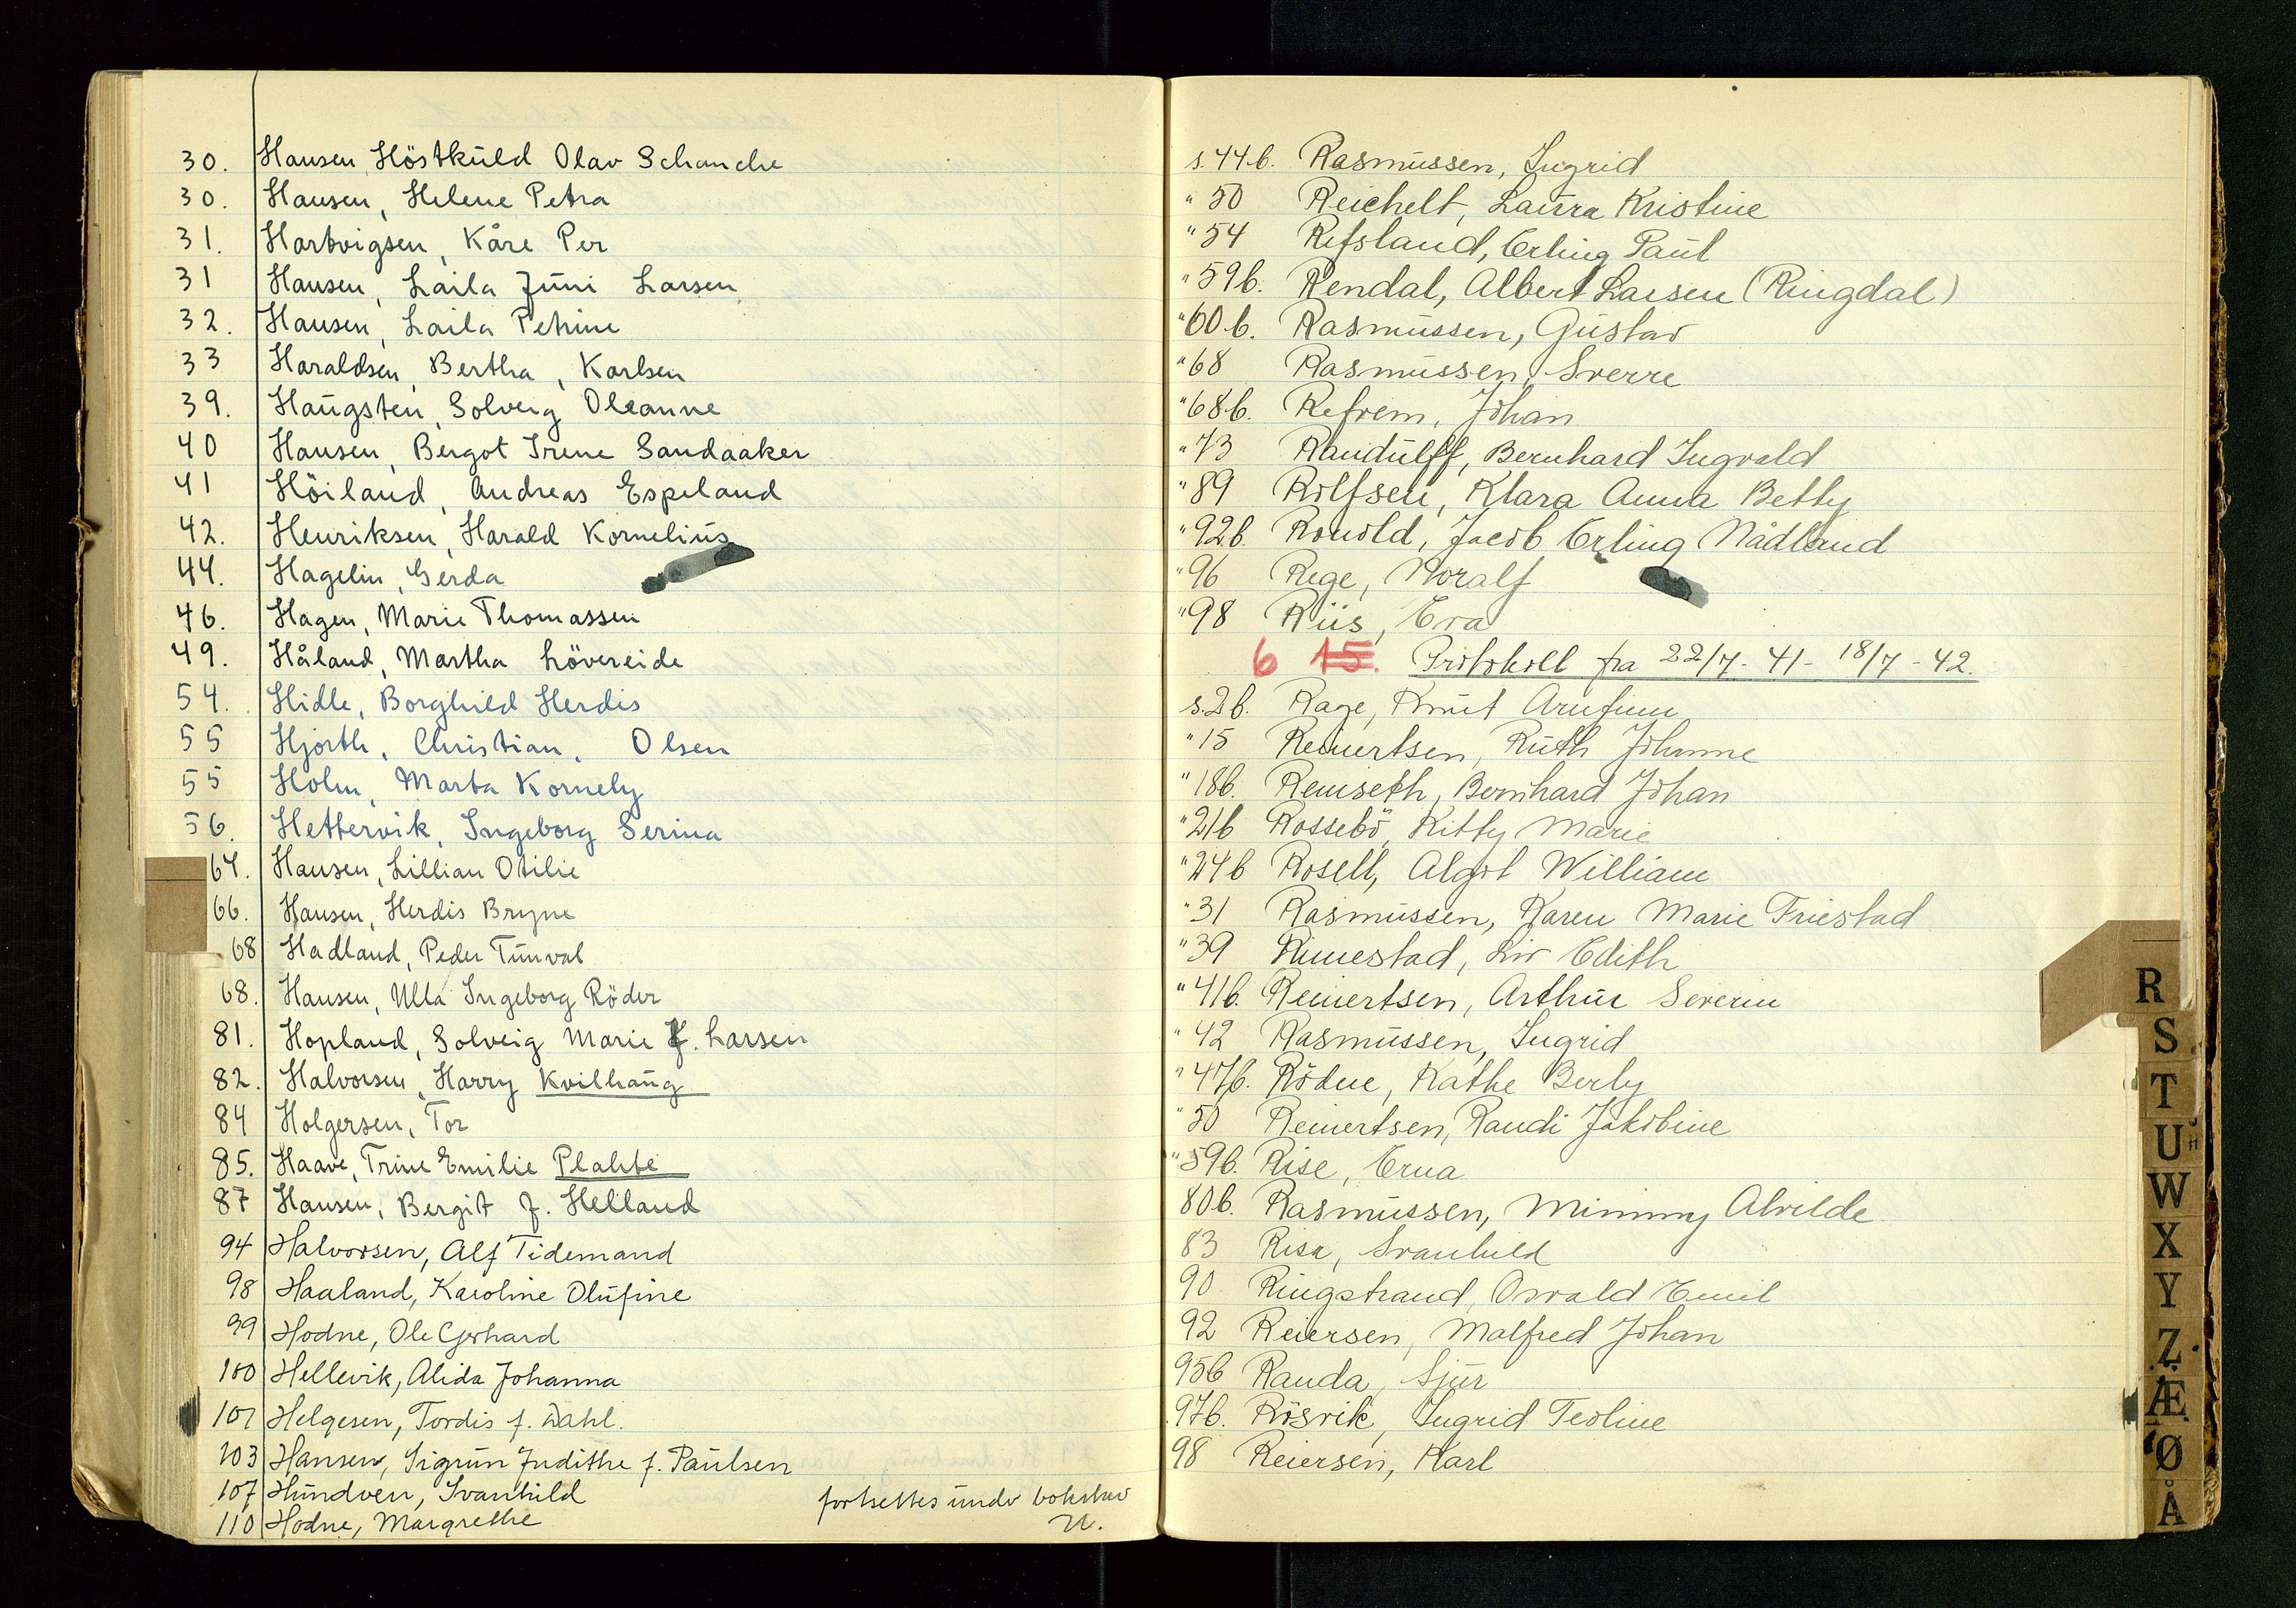 30. Hansen, Höstkuld Olav Schanche
30. Hansen, Helene Petra
31. Hartvigsen, Kåre Per
31 Hansen, Laila Juni Larsen
32. Hansen, Laila Petrine
33 Haraldsen, Bertha, Karlsen
39. Haugsten, Solveig Oleanne
40 Hansen, Bergot Irene Sandaaker
41 Höiland, Andreas Espeland
42. Henriksen, Harald Kornelius
44. Hagelin, Gerda
46. Hagen, Marie Thomassen
49. Håland, Martha Lövereide
54. Hidle, Borghild Herdis
55 Hjorth, Christian, Olsen
55 Holm, Marta Kornely
56. Hettervik, Ingeborg Serina
64. Hansen, Lillian Otilie
66. Hansen, Herdis Bryne
68 Hadland, Peder Tunval
68. Hansen, Ulla Ingeborg Röder
81. Hopland, Solveig Marie f. Larsen
82. Halvorsen, Harry Kvilhaug
84 Holgersen, Tor
85. Haave, Trine Emilie Plahte
87 Hansen, Bergit f. Helland
94 Halvorsen, Alf Tidemand
98 Haaland, Karoline Olufine
99 Hodne, Ole Gerhard
100 Hellevik, Alida Johanna
101 Helgesen, Tordis f. Dahl.
103 Hansen, Sigrun Judithe f. Paulsen
107 Hundven, Svanhild
110 Hodne, Margrethe
fortsettes under bokstav
U.
s. 44b. Rasmussen, Ingrid
" 50 Reichelt, Laura Kristine
" 54 Refsland, Erling Paul
" 59b. Rendal, Albert Larsen (Ringdal)
" 60b. Rasmussen, Gustav
" 68 Rasmussen, Sverre
" 68b. Refrem, Johan
" 73 Randulff, Bernhard Ingvald
" 89 Rolfsen, Klara Anna Betty
" 92b. Ronold, Jacob Erling Nådland
" 96 Rege, Thoralf
" 98 Riis, Eva
6 15. Protokoll fra 22/7-41- 18/7-42.
s. 2b. Rage, Knut Arnfinn
" 15 Reinertsen, Ruth Johanne
" 18b. Remseth, Bernhard Johan
" 21b Rossebö, Kitty Marie
" 24b Rosell, Algot William
" 31 Rasmussen, Karen Marie Friestad
" 39 Rimestad, Liv Edith
" 41b. Reinertsen, Arthur Severin
" 42 Rasmussen, Ingrid
" 47b. Rödne, Kathe Berly
" 50 Reinertsen, Randi Jakobine
" 59b. Rise, Erna
80b. Rasmussen, Mimmy Alvilde
83 Risa, Svanhild
90 Ringstrand, Osvald Emil
92 Reiersen, Malfred Johan
95b Randa, Sjur
97b. Rösvik, Ingrid Teoline
98 Reiersen, Karl
R
S
T
U
W
X
Y
Z
Æ
Ø
Å